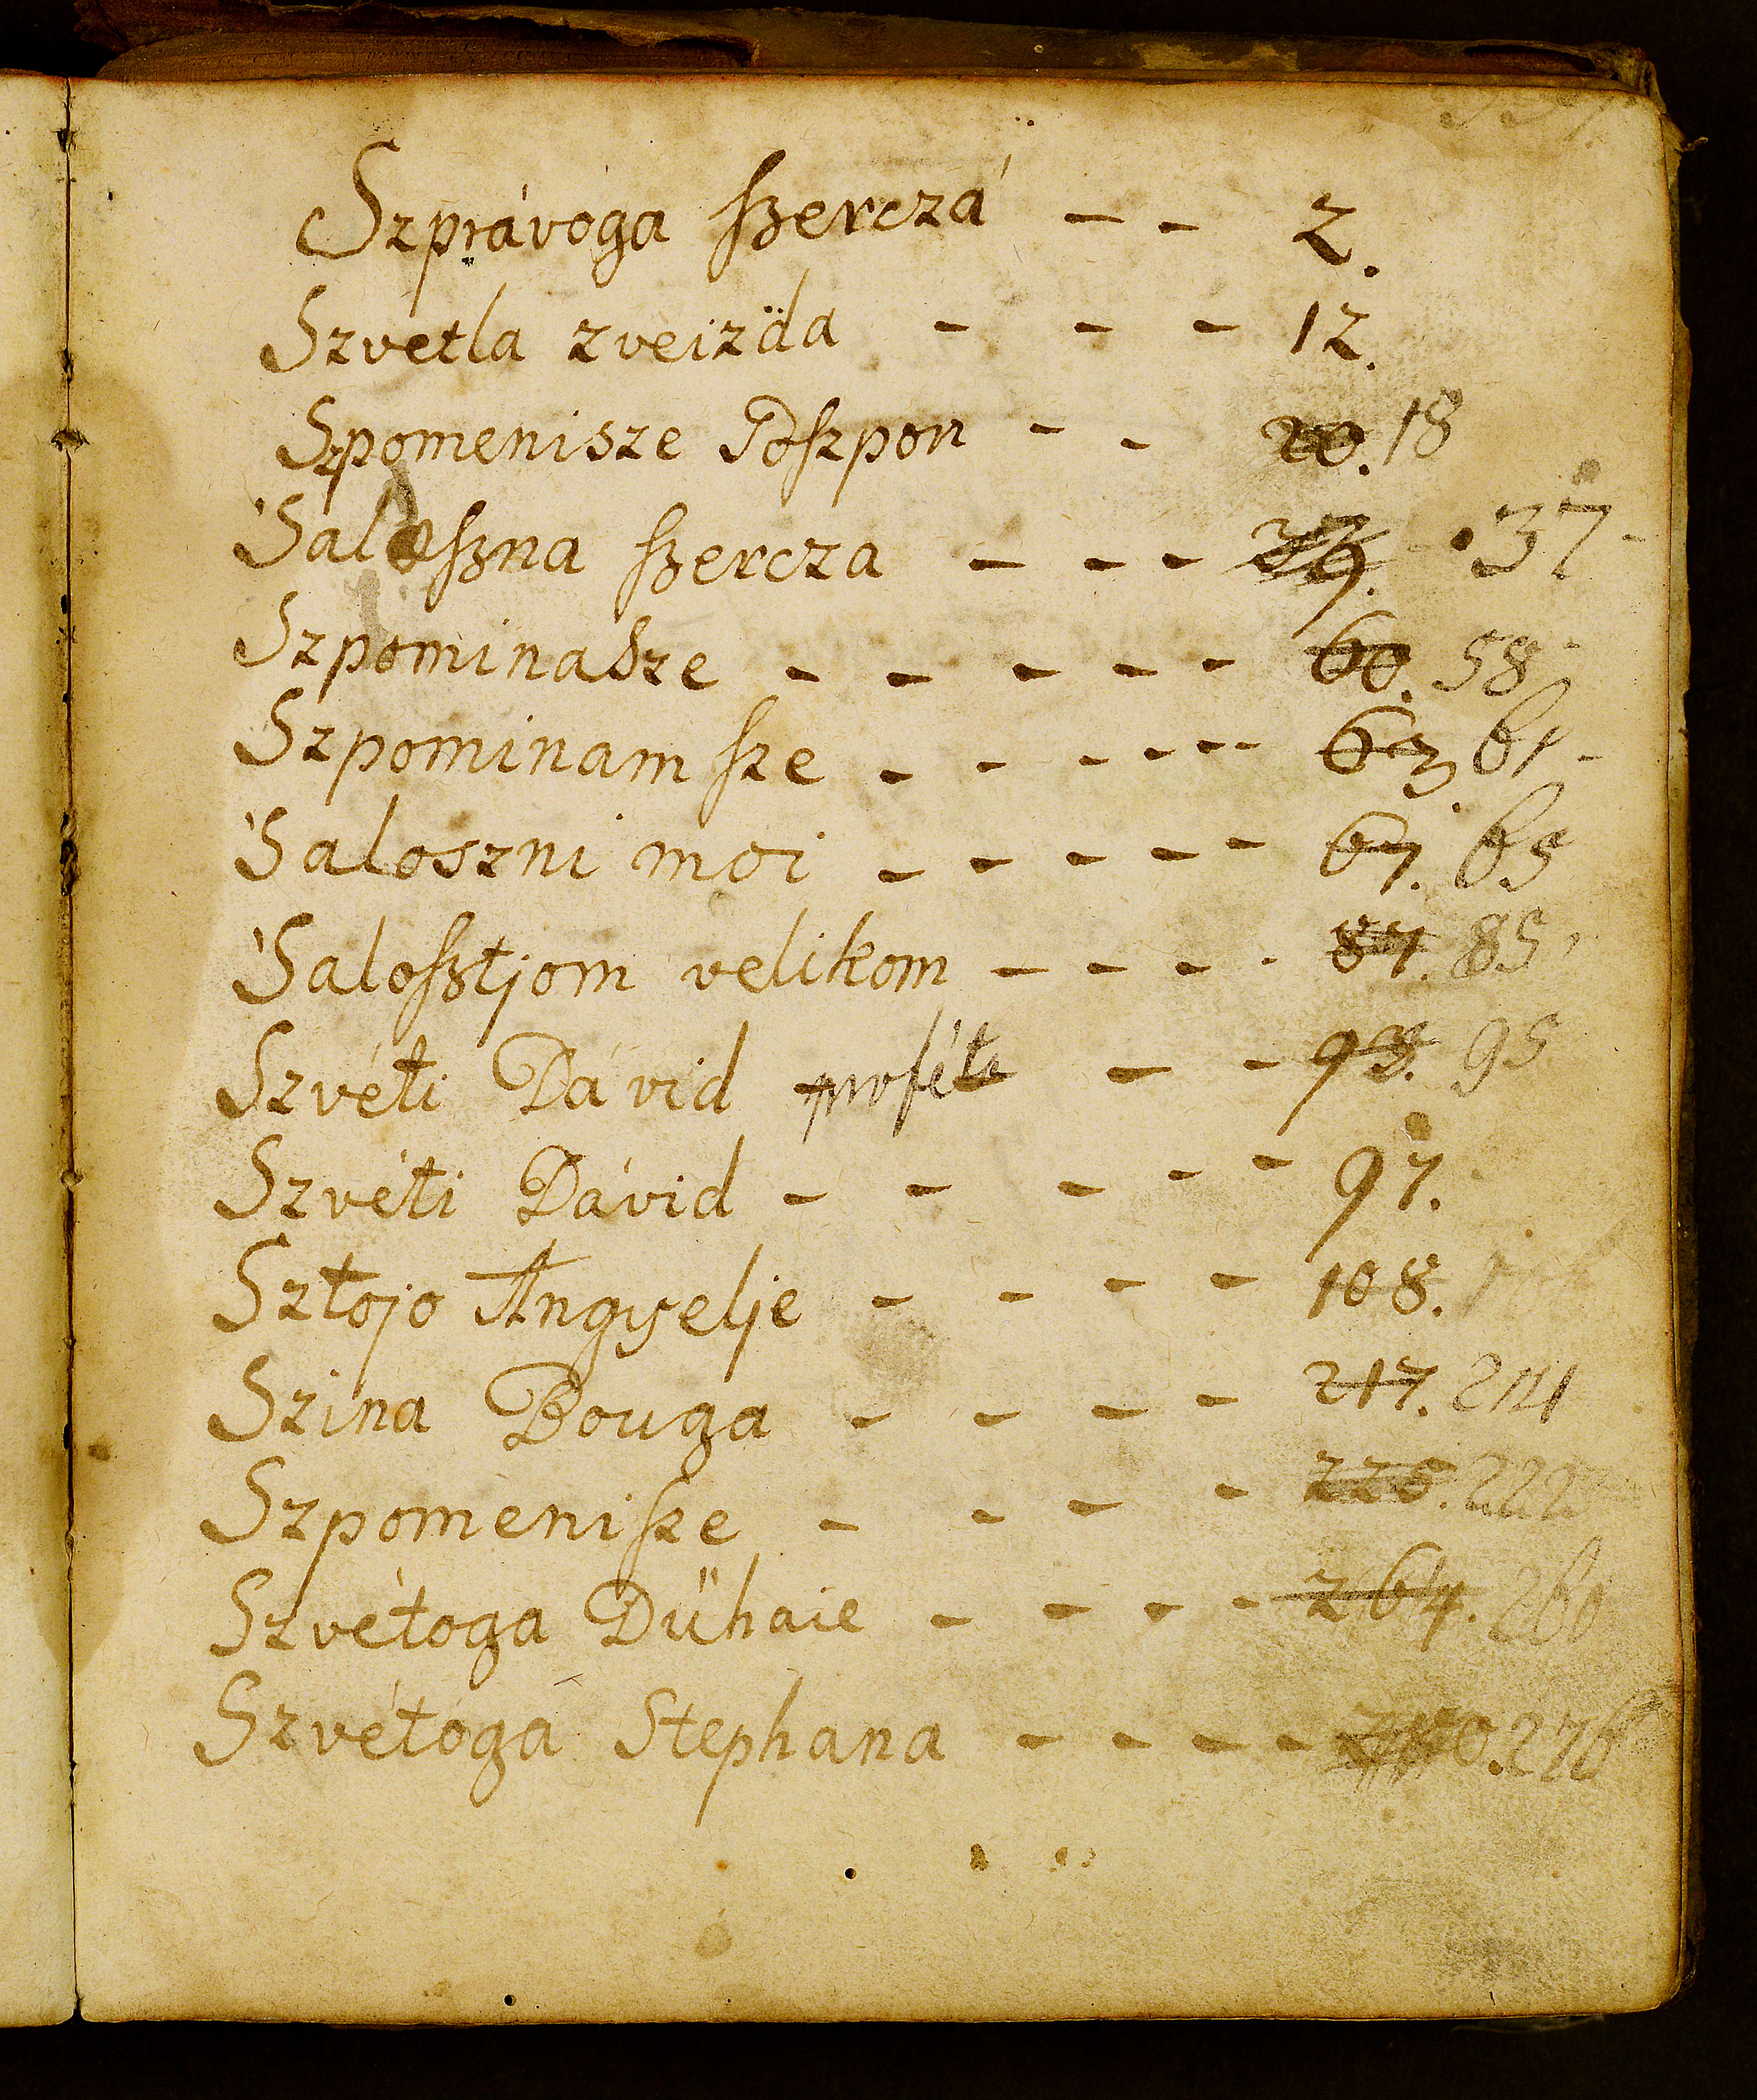 Szprávoga ſzerczá - - 2.
Szvetla zveizda - - - 12.
Szpomenisze Goſzpon - - 20. 18
'Saloſzna ſzercza - - - 37
Szpominasze - - - - - 60. 58
Szpominam ſze - - - - - - 63. 61
'Saloszni moi - - - - - 67. 65
'Saloſztjom velikom - - - - 87. 85
Szvéti Dávid proféta - - 93. 95
Szvéti Dávid - - - - - 97.
Sztojo Angyelje - - - - 108.
Szina Bouga - - - - 217. 214
Szpomeniſze - - - - 222
Szvétoga Dűhaie - - - - 264. 260
Szvétoga Stephana - - - - 276